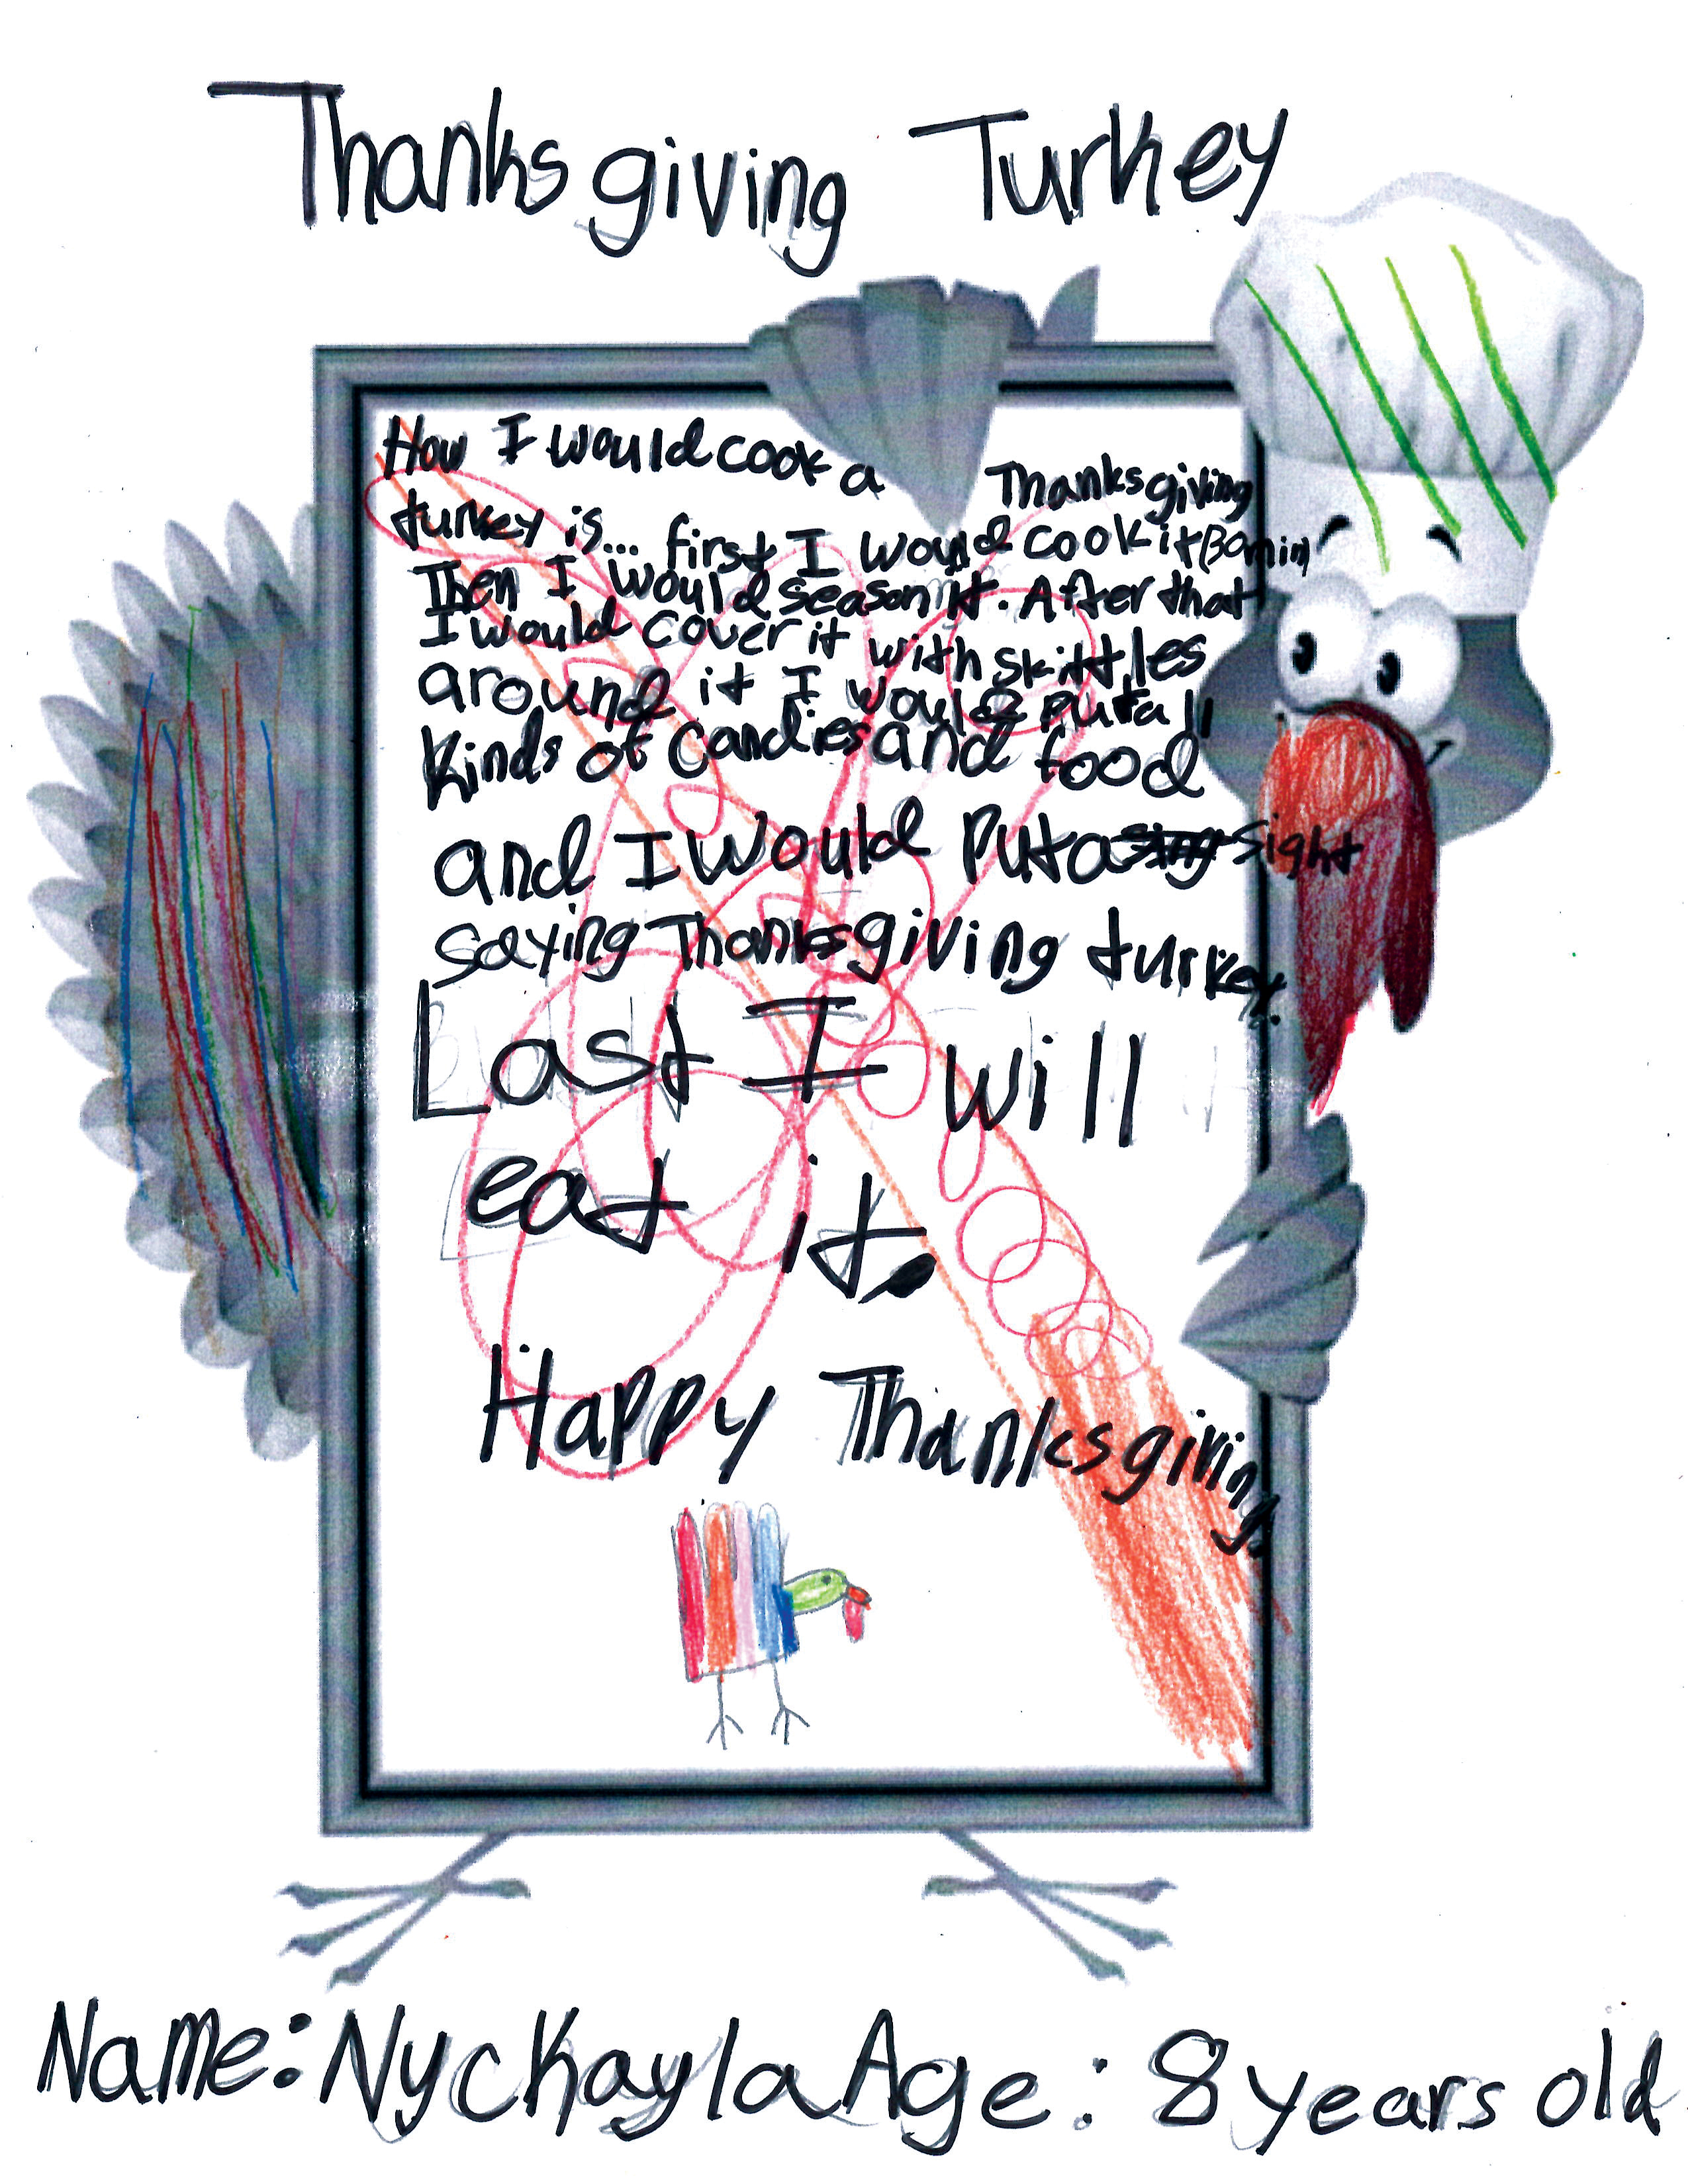 Thanksgiving Turkey
How I would cook a Thanksgiving
turkey is... first I would cook it 30 min
Then I would season it. After that
I would cover it with skittles
around it I would put all
kinds of candies and food
and I would put a sing sight
saying Thanksgiving turkey.
Last I will
eat it.
Happy Thanksgiving.
Name: Nyckayla Age: 8 years old.